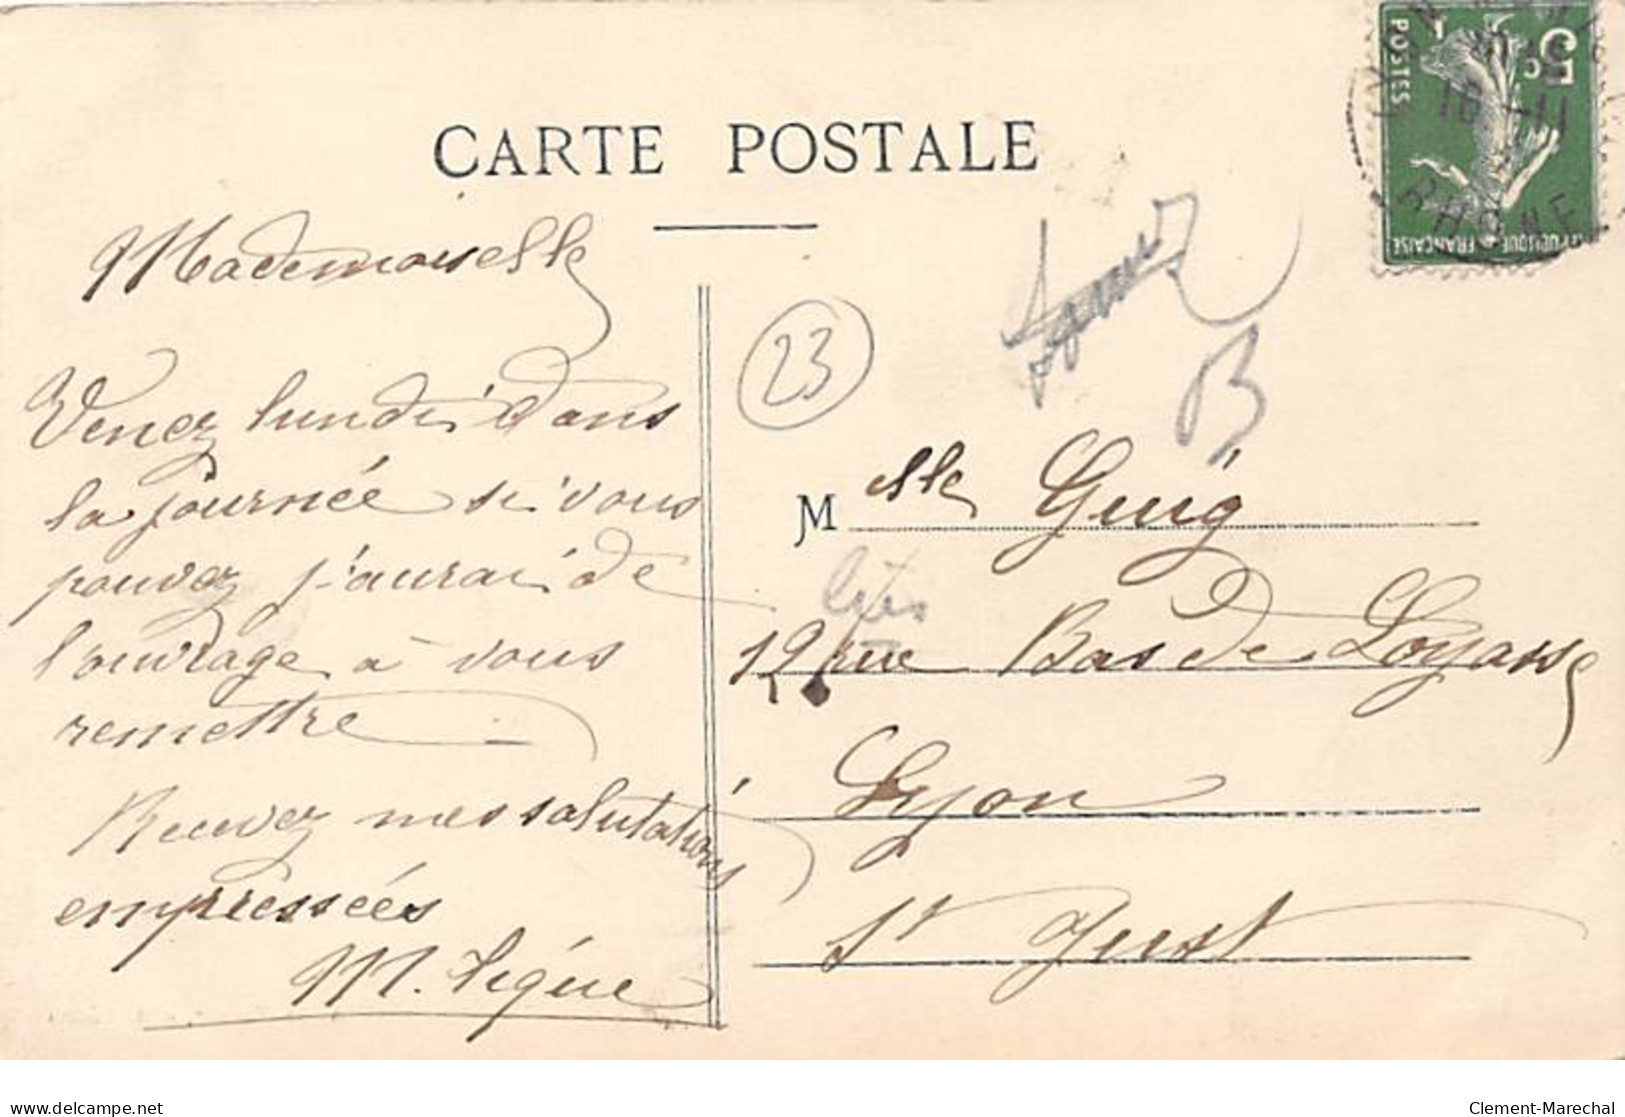 CARTE POSTALE
Mademoiselle
Venez lundi dans
la journée si vous
pouvez j'aurai de
l'ouvrage à vous
remettre
Recevez mes salutations
empressées
M.
23
B
Melle Guig
12 rue Bas de Loyasse
Lyon
St Just
5c
POSTES
REPUBLIQUE FRANÇAISE
RHONE
delcampe.net
Clement-Marechal